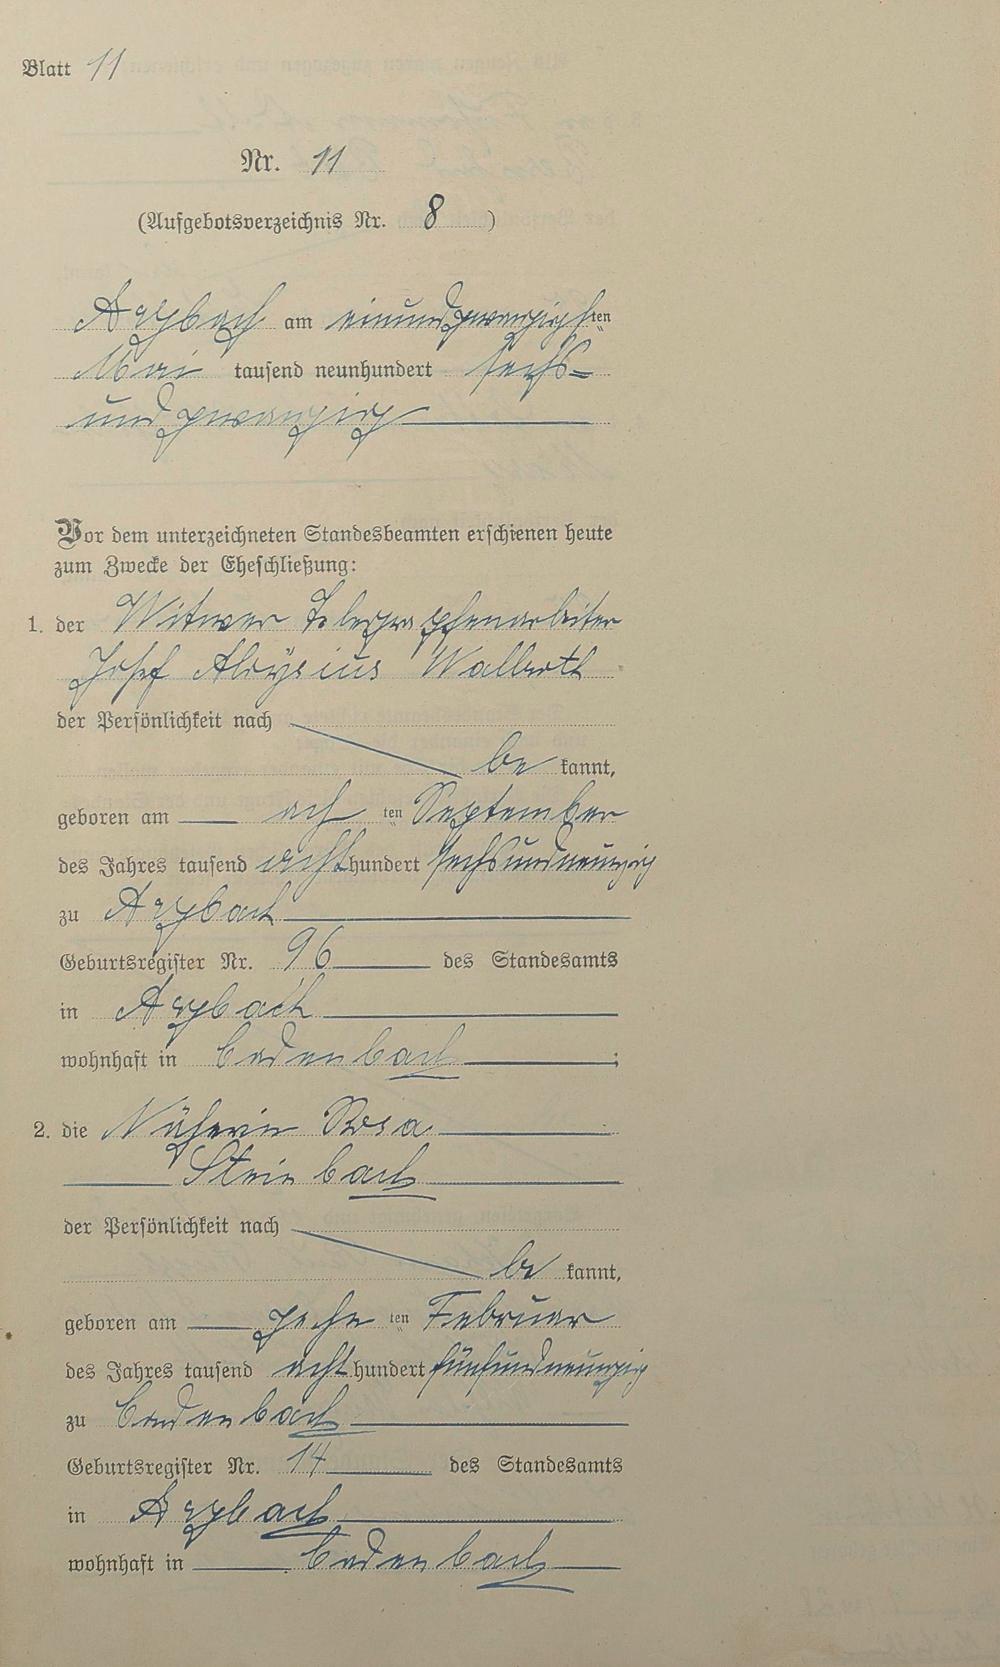 Blatt 11
Nr. 11
(Aufgebotsverzeichnis Nr. 8 )
Arzbach am einundzwanzigsten
Mai tausend neunhundert sechs=
undzwanzig
Vor dem unterzeichneten Standesbeamten erschienen heute
zum Zwecke der Eheschließung:
1. der Witwer Telegraphenarbeiter
Josef Aloysius Walberth
der Persönlichkeit nach
be kannt,
geboren am ach ten September
des Jahres tausend achthundert sechsundneunzig
zu Arzbach
Geburtsregister Nr. 96 des Standesamts
in Arzbach
wohnhaft in Cadenbach ;
2. die Näherin Rosa
Steinbach
der Persönlichkeit nach
be kannt,
geboren am zehn ten Februar
des Jahres tausend achthundert fünfundneunzig
zu Cadenbach
Geburtsregister Nr. 14 des Standesamts
in Arzbach
wohnhaft in Cadenbach